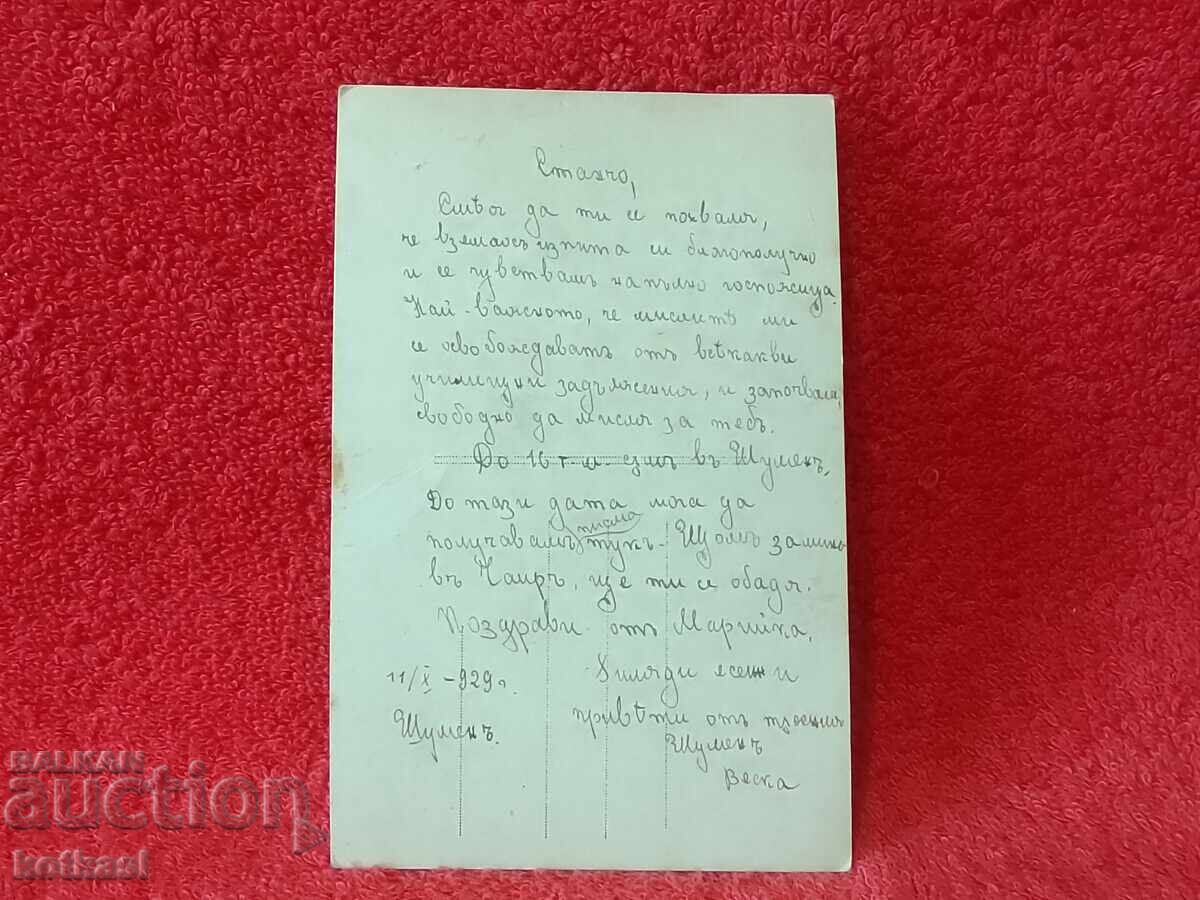 Станчо,
Смѣя да ти се похваля,
че вземахъ изпита си благополучно
и се чувствамъ напълно госпожица.
Най-важното, че мислитѣ ми
се освобождаватъ отъ всѣкакви
училищни задължения, и започвамъ
свободно да мисля за тебъ.
До 16 т.м. съмъ въ Шуменъ,
До тази дата мога да
получавамъ писма тукъ. Щомъ замина
въ Чаиръ, ще ти се обадя.
Поздрави отъ Марийка.
Хиляди ясени
11/X -929 г.
привѣти отъ
Шуменъ.
Шуменъ
Веска
BALKAN
auction
kotkasl